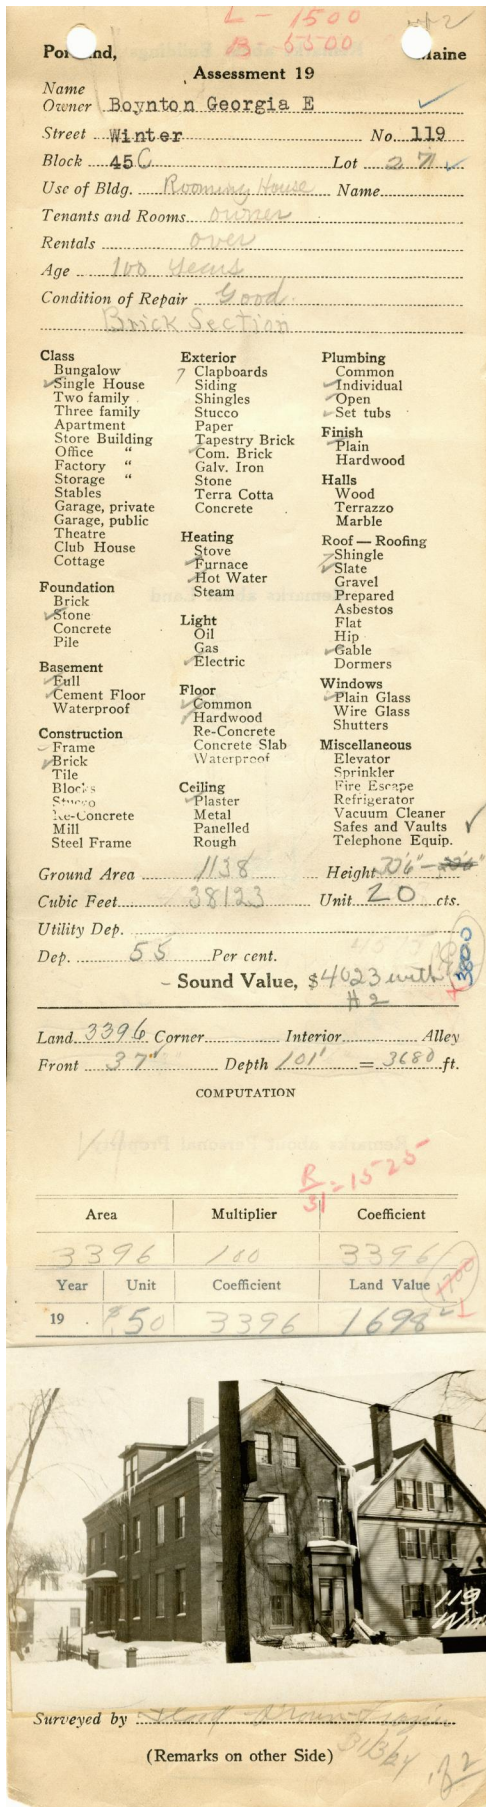 L - 1500
B 5500
#2
Portland, Maine
Assessment 19
Name
Owner Boynton Georgia E
Street Winter No. 119
Block 45C Lot 27
Use of Bldg. Rooming House Name
Tenants and Rooms owner
Rentals over
Age 100 years
Condition of Repair Good
Brick Section
Class
Bungalow
Single House
Two family
Three family
Apartment
Store Building
Office "
Factory "
Storage "
Stables
Garage, private
Garage, public
Theatre
Club House
Cottage
Foundation
Brick
Stone
Concrete
Pile
Basement
Full
Cement Floor
Waterproof
Construction
Frame
Brick
Tile
Blocks
Stucco
Re-Concrete
Mill
Steel Frame
Exterior
Clapboards
Siding
Shingles
Stucco
Paper
Tapestry Brick
Com. Brick
Galv. Iron
Stone
Terra Cotta
Concrete
Heating
Stove
Furnace
Hot Water
Steam
Light
Oil
Gas
Electric
Floor
Common
Hardwood
Re-Concrete
Concrete Slab
Waterproof
Ceiling
Plaster
Metal
Panelled
Rough
Plumbing
Common
Individual
Open
Set tubs
Finish
Plain
Hardwood
Halls
Wood
Terrazzo
Marble
Roof — Roofing
Shingle
Slate
Gravel
Prepared
Asbestos
Flat
Hip
Gable
Dormers
Windows
Plain Glass
Wire Glass
Shutters
Miscellaneous
Elevator
Sprinkler
Fire Escape
Refrigerator
Vacuum Cleaner
Safes and Vaults
Telephone Equip.
Ground Area 1138 Height
Cubic Feet 38123 Unit 20 cts.
Utility Dep.
Dep. 55 Per cent.
3800
Sound Value, $4023 with
#2
Land 3396 Corner Interior Alley
Front 37' Depth 101' = 3680 ft.
COMPUTATION
R/31 = 1525
Area Multiplier Coefficient
3396 100 3396
Year Unit Coefficient Land Value 1700
19 $.50 3396 1698
119
Surveyed by
(Remarks on other Side)